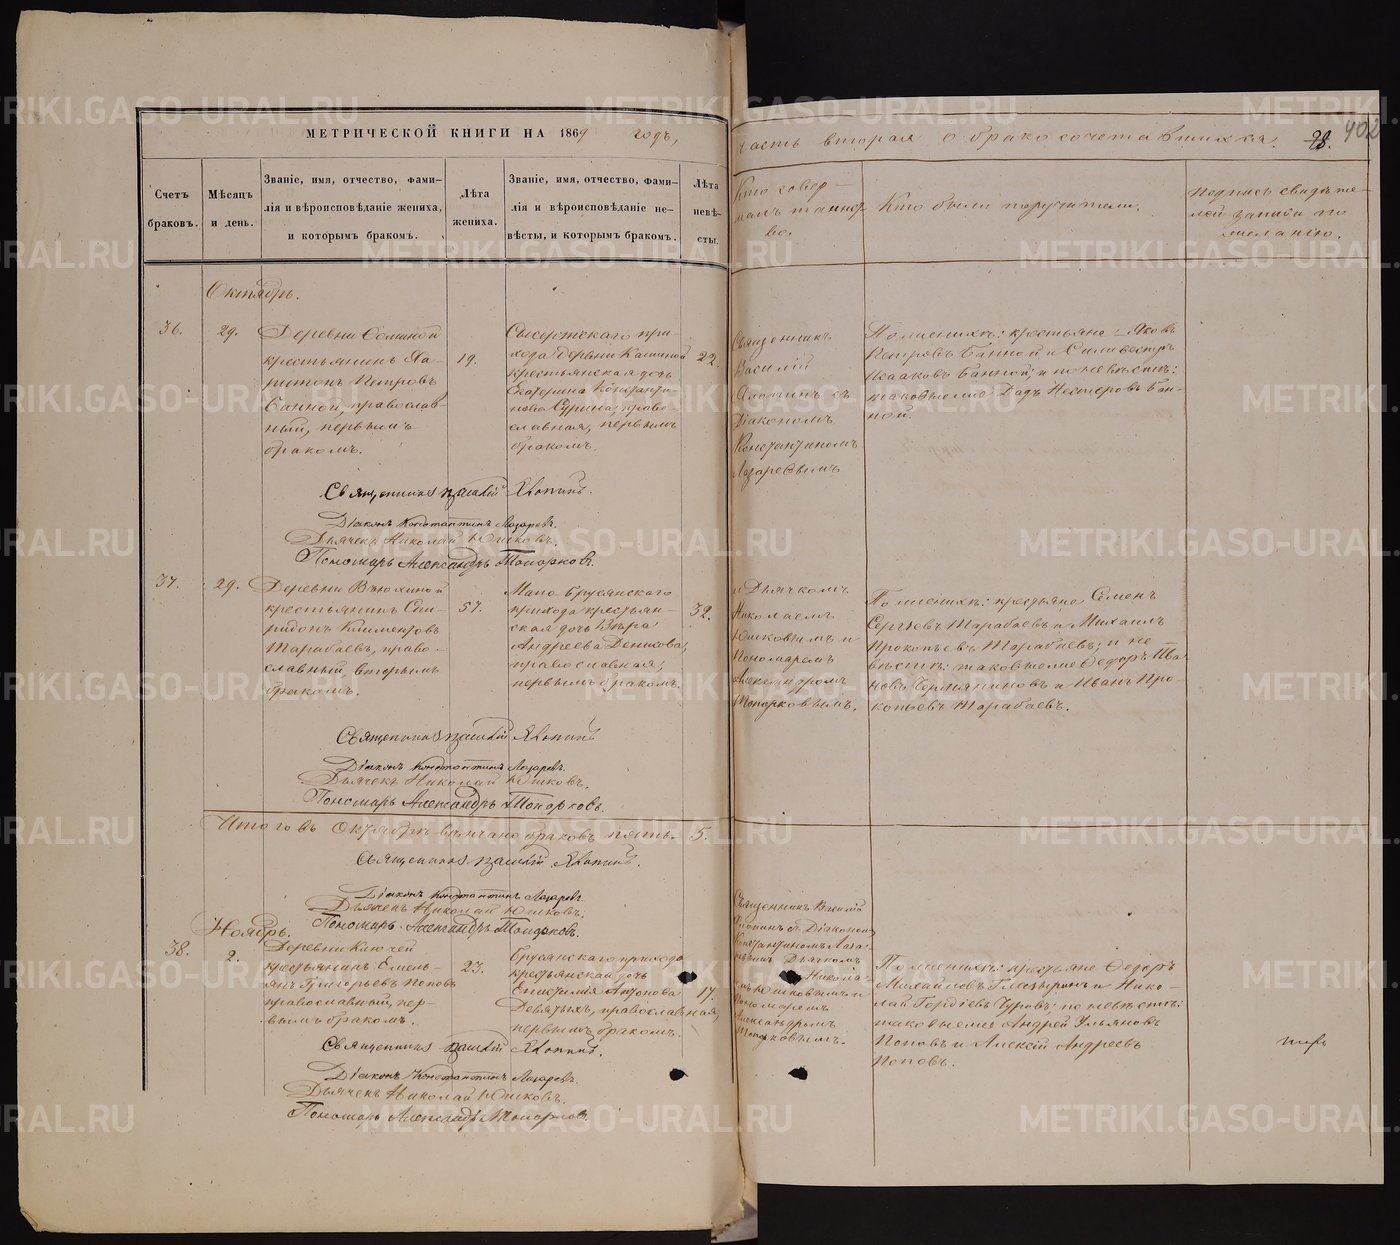 МЕТРИЧЕСКОЙ КНИГИ НА 1869 годъ,
часть вторая о бракосочетавшихся.
98.
402
Счетъ браковъ.
Мѣсяцъ и день.
Званіе, имя, отчество, фами-
лія и вѣроисповѣданіе жениха,
и которымъ бракомъ.
Лѣта жениха.
Званіе, имя, отчество, фами-
лія и вѣроисповѣданіе не-
вѣсты, и которымъ бракомъ.
Лѣта невѣ-
сты.
Кто совер-
шалъ таинст-
во.
Кто были поручители.
Подпись свидѣте-
лей записи по
желанію.
Октябрь.
36.
29.
Деревни Осминой
крестьянинъ Ха-
ритонъ Петровъ
Банной, православ-
ный, первымъ
бракомъ.
19.
Сысертскаго при-
хода деревни Кашиной
крестьянская дочь
Екатерина Константи-
нова Сурина, право-
славная, первымъ
бракомъ.
22.
Священникъ
Василій
съ
Діакономъ
Константиномъ
Лазаревымъ
По женихѣ: крестьяне: Яковъ
Петровъ Банной и Сильвестръ
Исааковъ Банной; и по невѣстѣ:
таковые же
Нестеровъ Бан-
ной.
Священникъ Василій
Діаконъ Константинъ Лазаревъ.
Дьячекъ Николай Юшковъ.
Пономарь Александръ Топорковъ.
37.
29.
Деревни Вьюхиной
крестьянинъ Спи-
ридонъ Климентовъ
Тарабаевъ, право-
славный, вторымъ
бракомъ.
57.
Мало-Брусянскаго
прихода крестьян-
ская дочь Вѣра
Андреева Денисова,
православная,
первымъ бракомъ.
32.
и Дьячкомъ
Николаемъ
Юшковымъ и
Пономаремъ
Александромъ
Топорковымъ.
По женихѣ: крестьяне Семенъ
Сергѣевъ Тарабаевъ и Михаилъ
Прокопьевъ Тарабаевъ; по не-
вѣстѣ: таковые же Ѳедоръ Ива-
новъ Чермяниновъ и Иванъ Про-
копьевъ Тарабаевъ.
Священникъ Василій
Діаконъ Константинъ Лазаревъ.
Дьячекъ Николай Юшковъ.
Пономарь Александръ Топорковъ.
Итого въ Октябрѣ вѣнчано браковъ пять. 5.
Священникъ Василій
Діаконъ Константинъ Лазаревъ.
Дьячекъ Николай Юшковъ.
Пономарь Александръ Топорковъ.
Ноябрь.
38.
2.
Деревни Ключей
крестьянинъ Емель-
янъ Григорьевъ Поповъ
православный, пер-
вымъ бракомъ.
23.
Брусянскаго прихода
крестьянская дочь
Епистимія Антонова
Девятыхъ, православная,
первымъ бракомъ.
17.
Священникъ Василій
съ Діакономъ
Константиномъ Лаза-
ревымъ Дьячкомъ
Никола-
емъ Юшковымъ и
Пономаремъ
Александромъ
Топорковымъ.
По женихѣ: крестьяне Ѳедоръ
Михайловъ Глазыринъ и Нико-
лай Гордѣевъ Чуровъ; по невѣстѣ:
таковые же Андрей Ульяновъ
Поповъ и Алексѣй Андреевъ
Поповъ.
Священникъ Василій
Діаконъ Константинъ Лазаревъ.
Дьячекъ Николай Юшковъ.
Пономарь Александръ Топорковъ.
METRIKI.GASO-URAL.RU